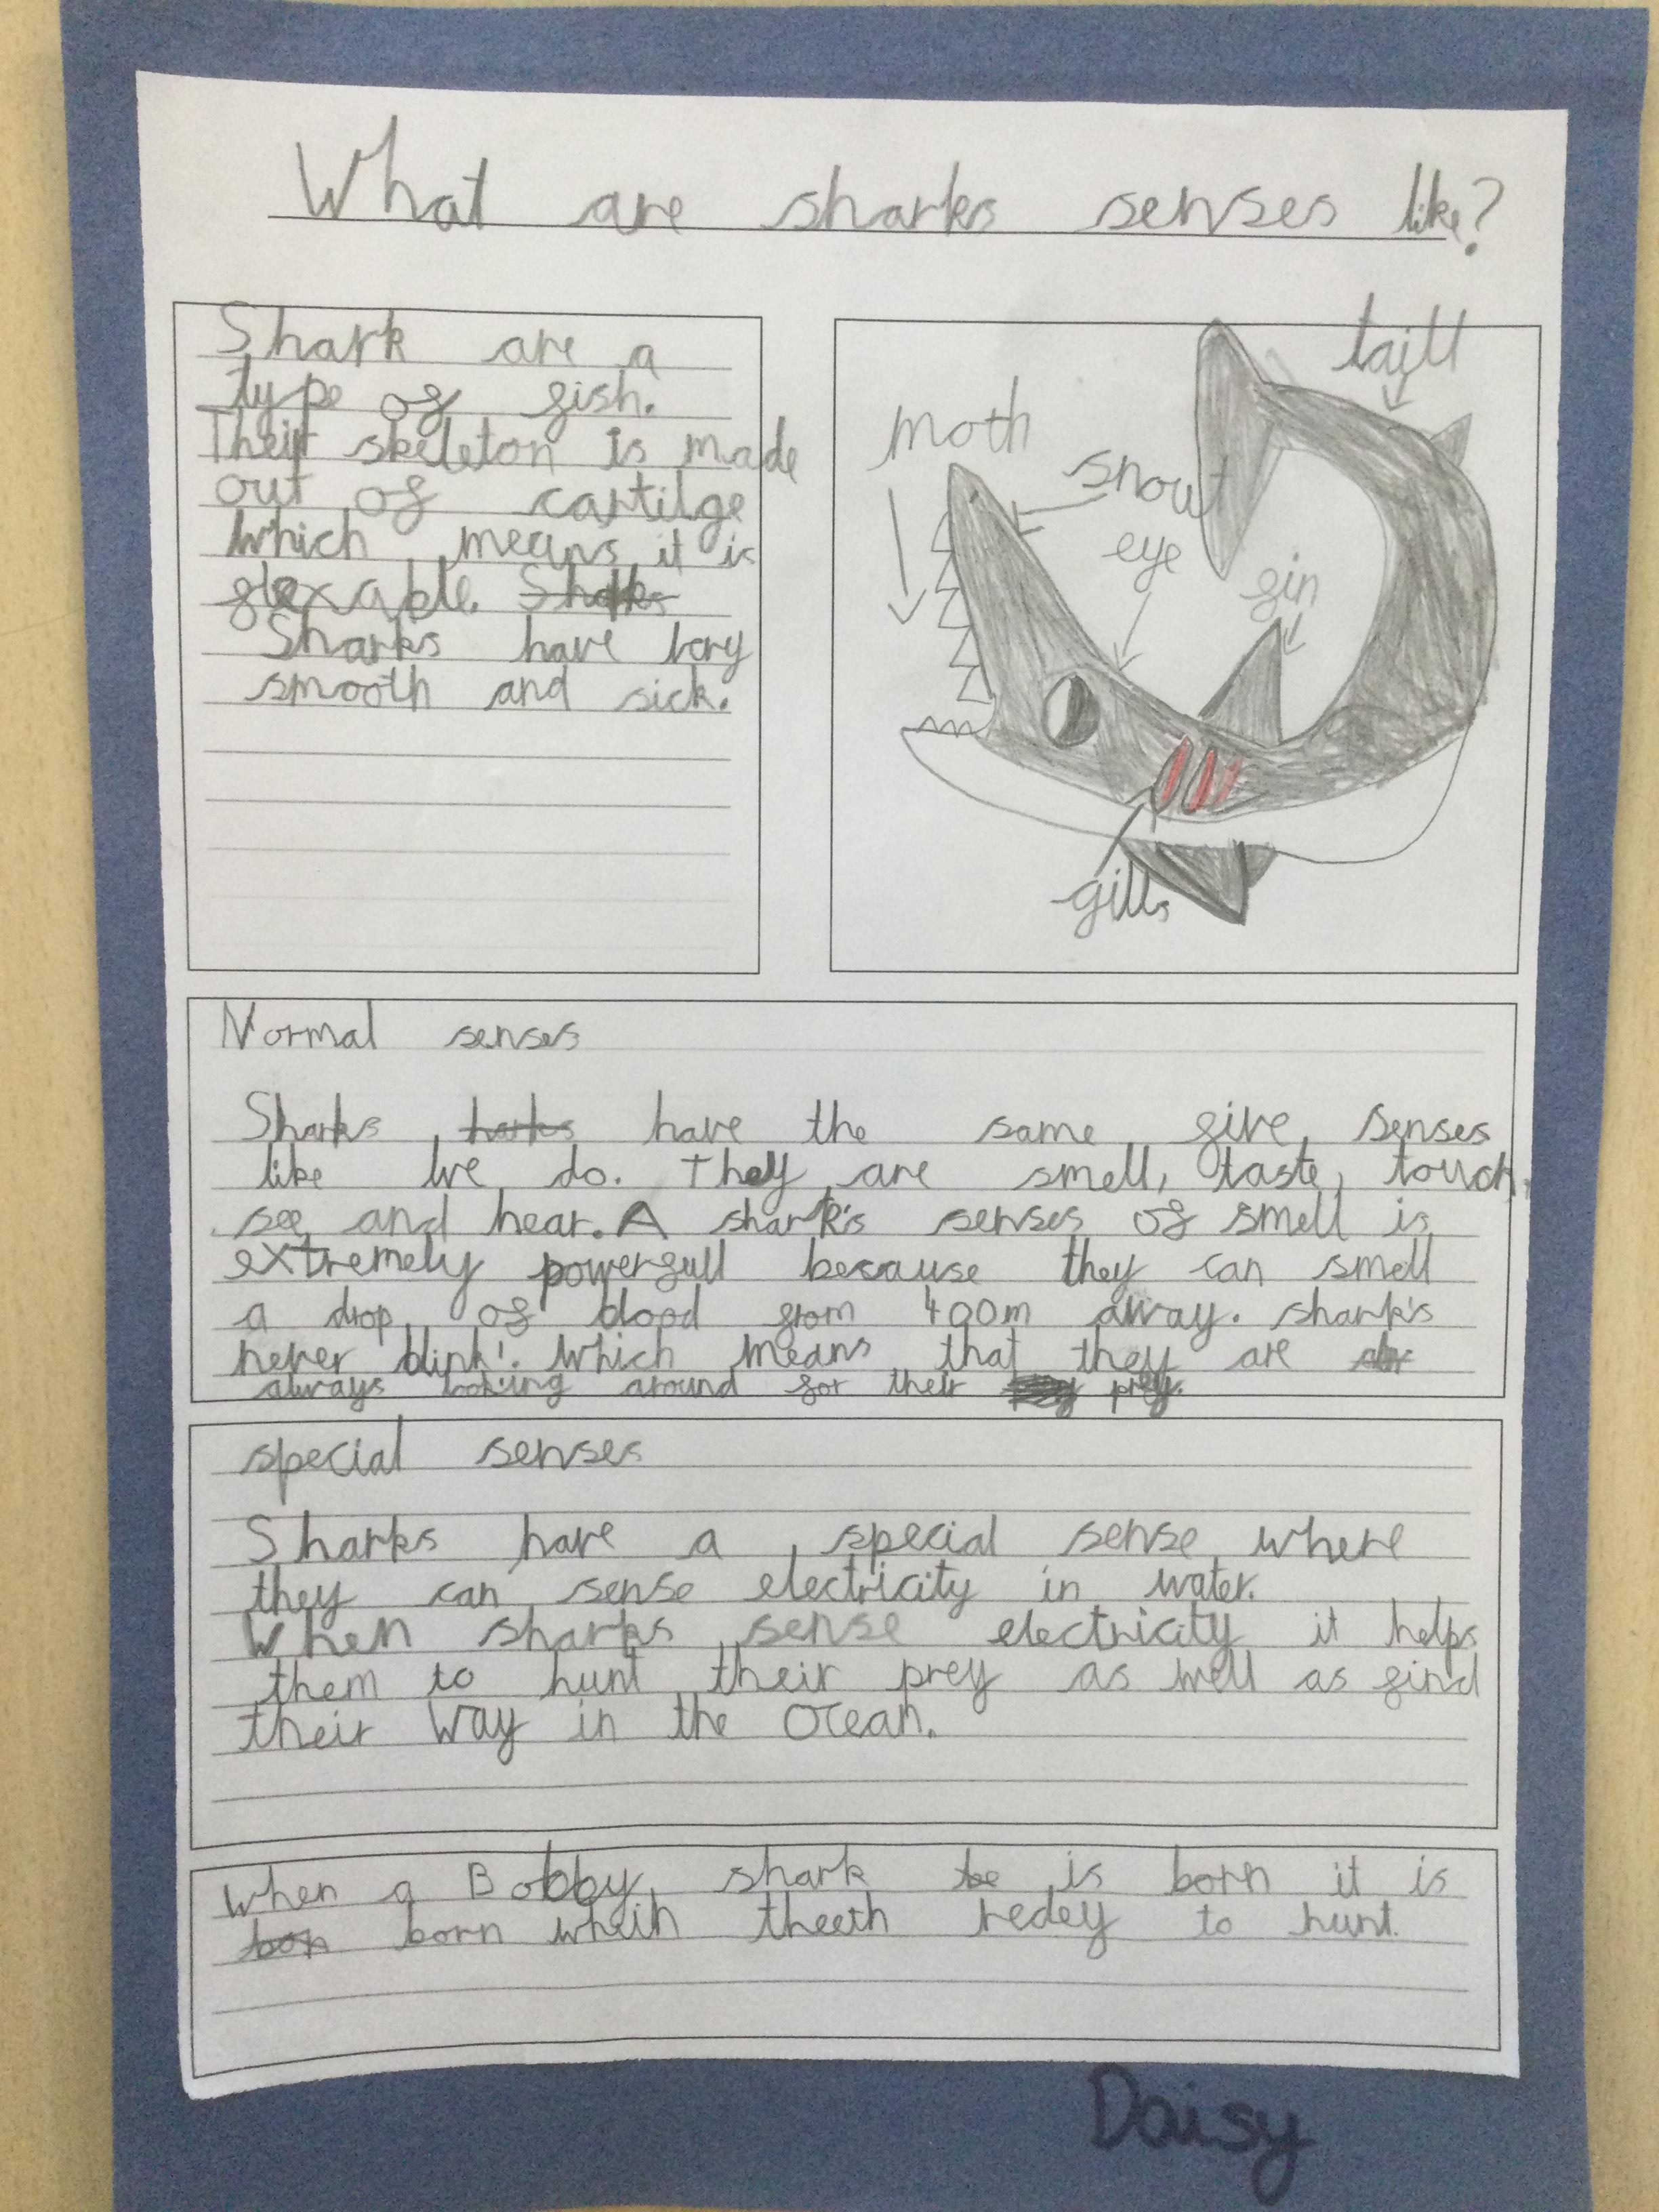 What are sharks senses like?
Shark are a
type of fish.
Their skeleton is made
out of cartilge
Which means it is
flexable. Sharks
Sharks have very
smooth and sick.
taill
moth
snout
eye
fin
gills
Normal senses
Sharks harks have the same five senses
like we do. They are smell, taste, touch,
see and hear. A shark's senses of smell is
extremely powerfull because they can smell
a drop of blood from 400m away. shark's
never blink!. Which means that they are
always looking around for their prey.
special senses
Sharks have a special sense where
they can sense electricity in water.
When sharks sense electricity it helps
them to hunt their prey as well as find
their way in the Ocean.
When a Bobby shark be is born it is
bon born whith theeth redey to hunt.
Daisy